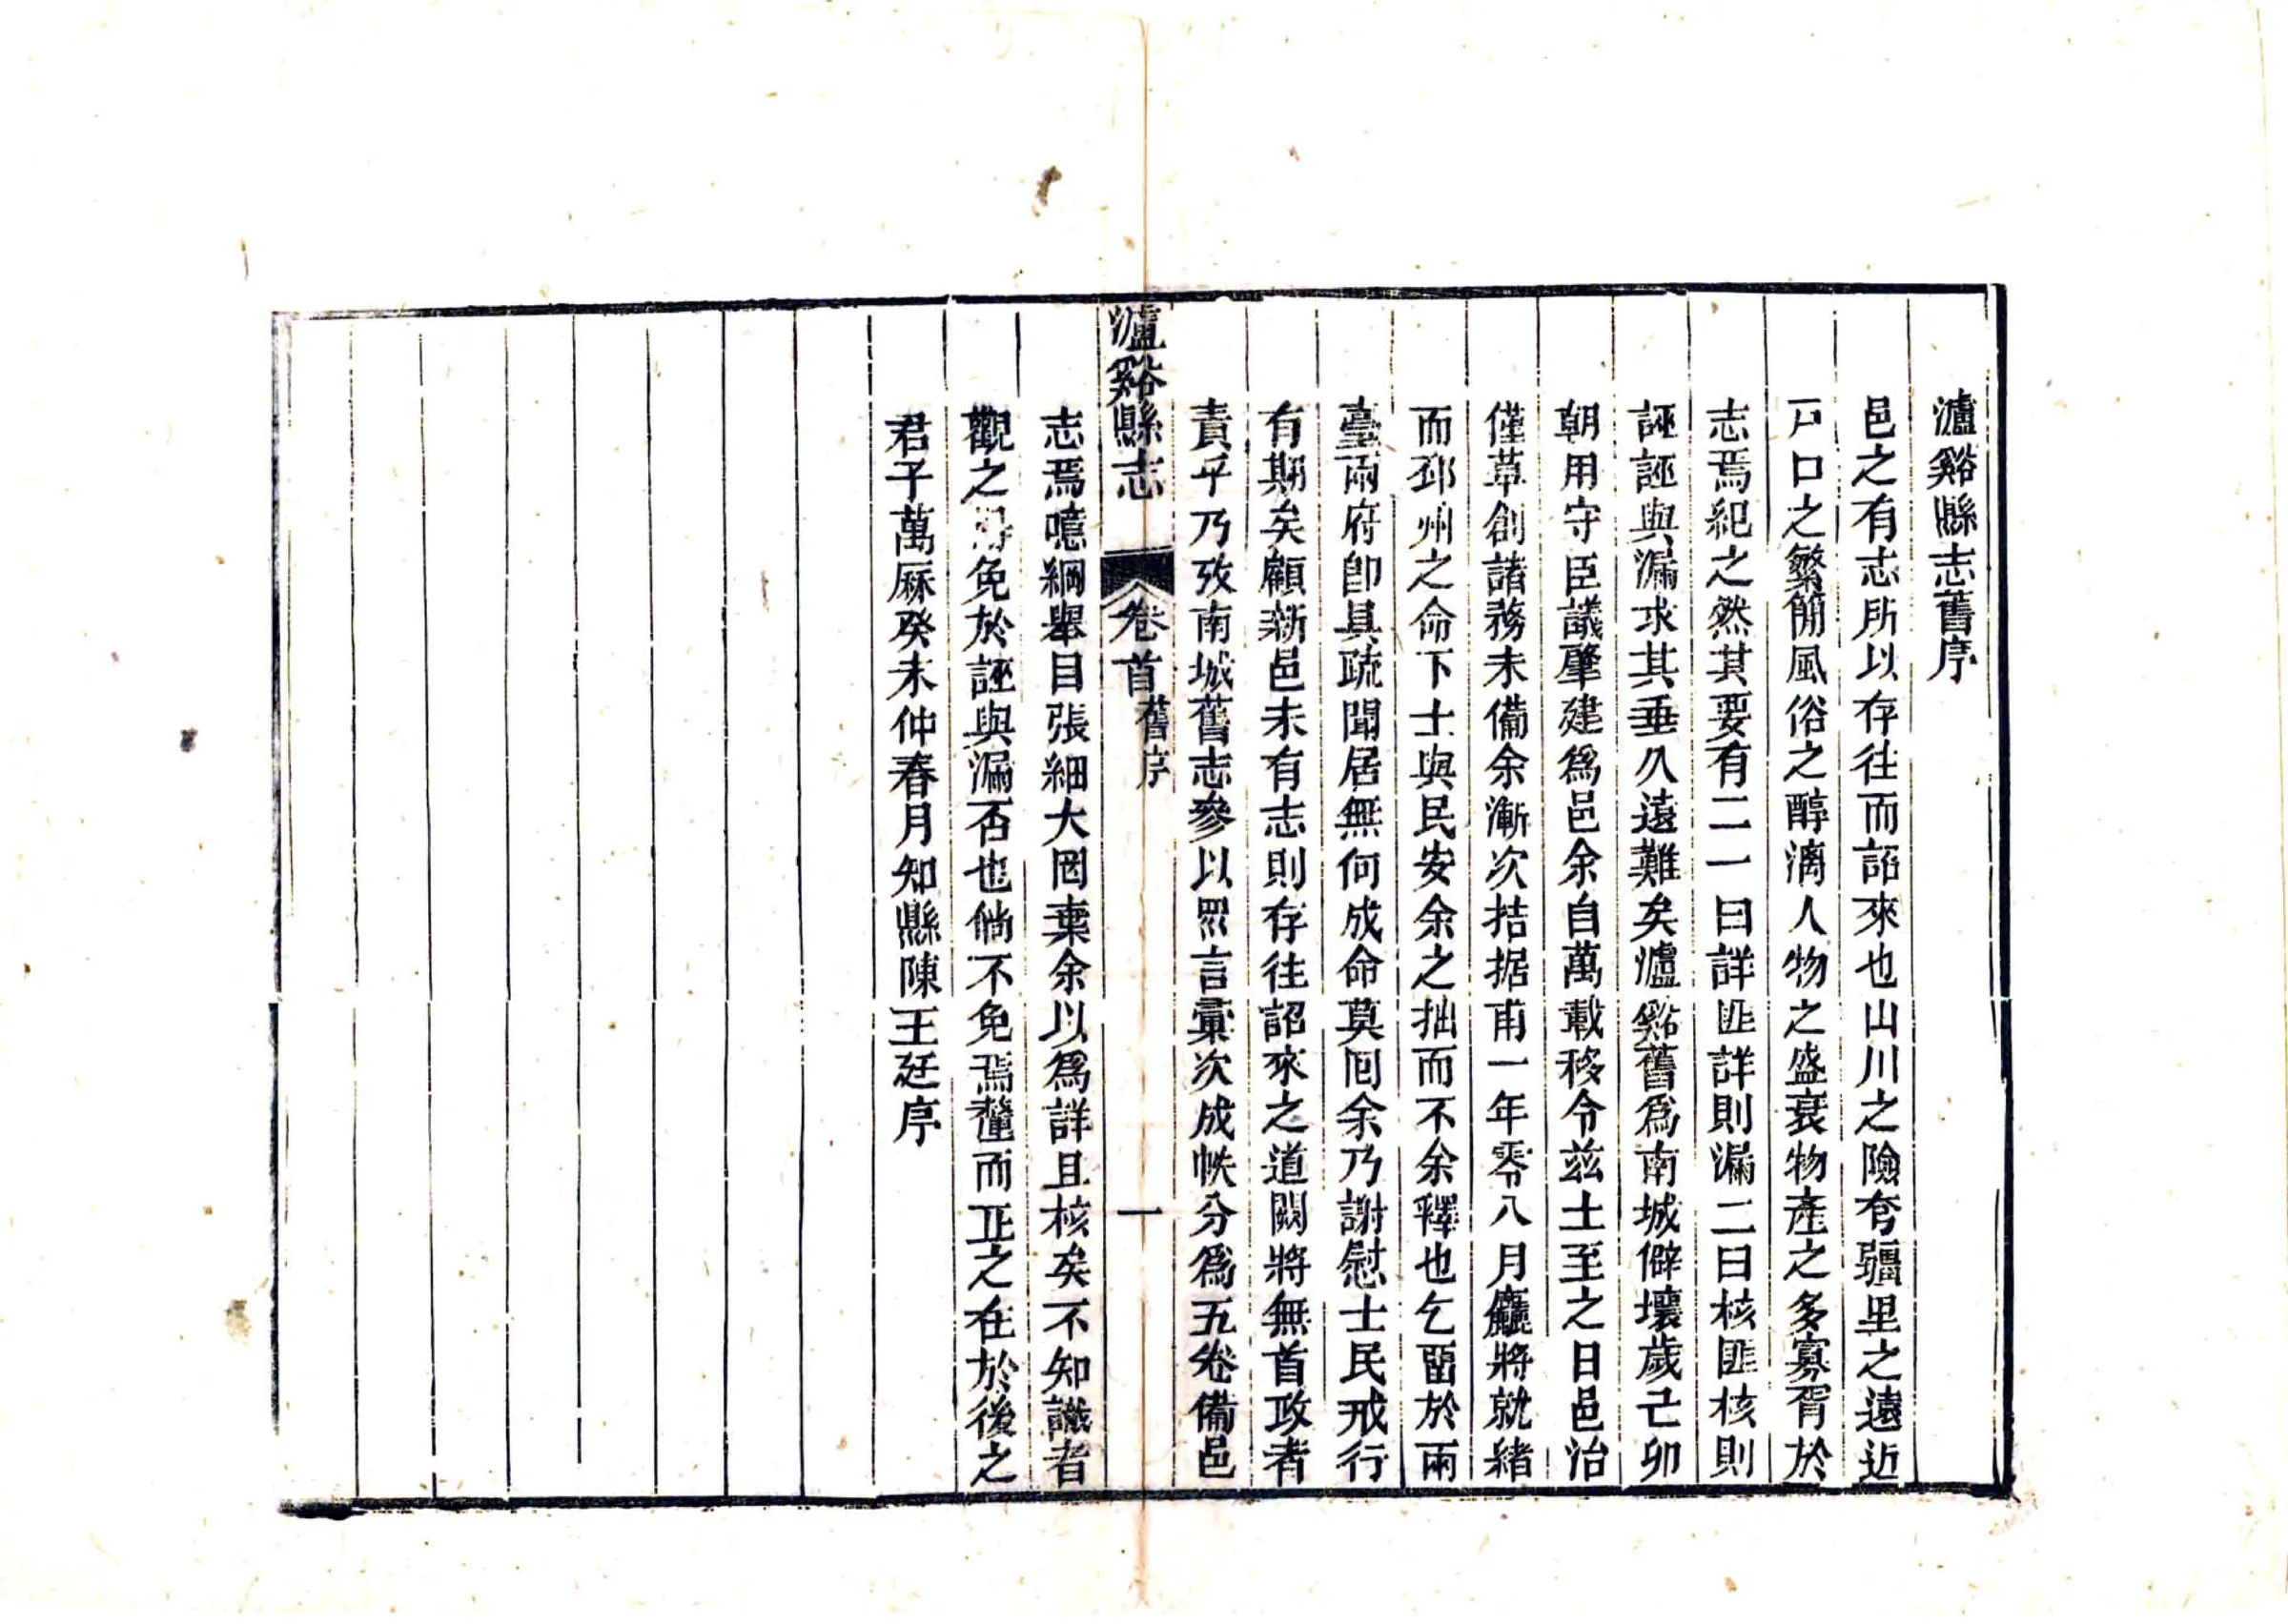 瀘谿縣志舊序
邑之有志所以存往而詔來也山川之險夸疆里之遠近
戸口之繁簡風俗之醇漓人物之盛衰物產之多寡胥於
志焉紀之然其要有二一曰詳匪詳則漏二曰核匪核則
誣誣與漏求其垂久遠難矣瀘谿舊爲南城僻壤歲己卯
朝用守臣議肇建爲邑余自萬載移令兹土至之日邑治
僅草創諸務未備余漸次拮据甫一年零八月廳將就緒
而邳州之命下士與民安余之拙而不余釋也乞畱於兩
臺兩府卽具疏聞居無何成命莫囘余乃謝慰士民戒行
有期矣顧新邑未有志則存往詔來之道闕將無首政者
責乎乃攷南城舊志參以眾言彙次成帙分爲五卷備邑
瀘谿縣志 卷首 舊序 一
志焉噫綱舉目張細大罔棄余以爲詳且核矣不知識者
觀之得免於誣與漏否也倘不免焉釐而正之在於後之
君子萬厤癸未仲春月知縣陳王廷序